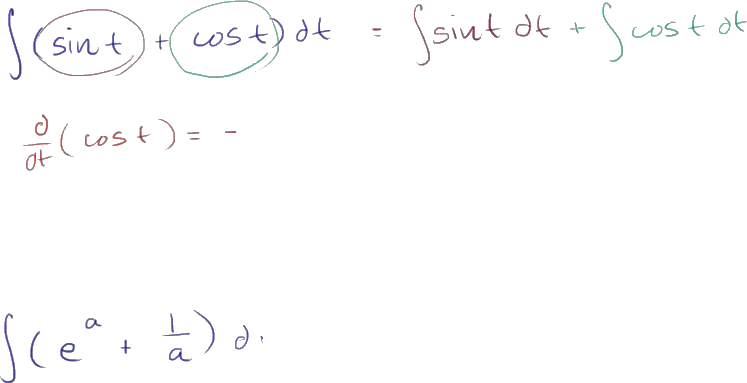 ∫(sin t + cos t) dt = ∫sin t dt + ∫cos t dt
d/dt (cos t) = -
∫(e^a + 1/a) d